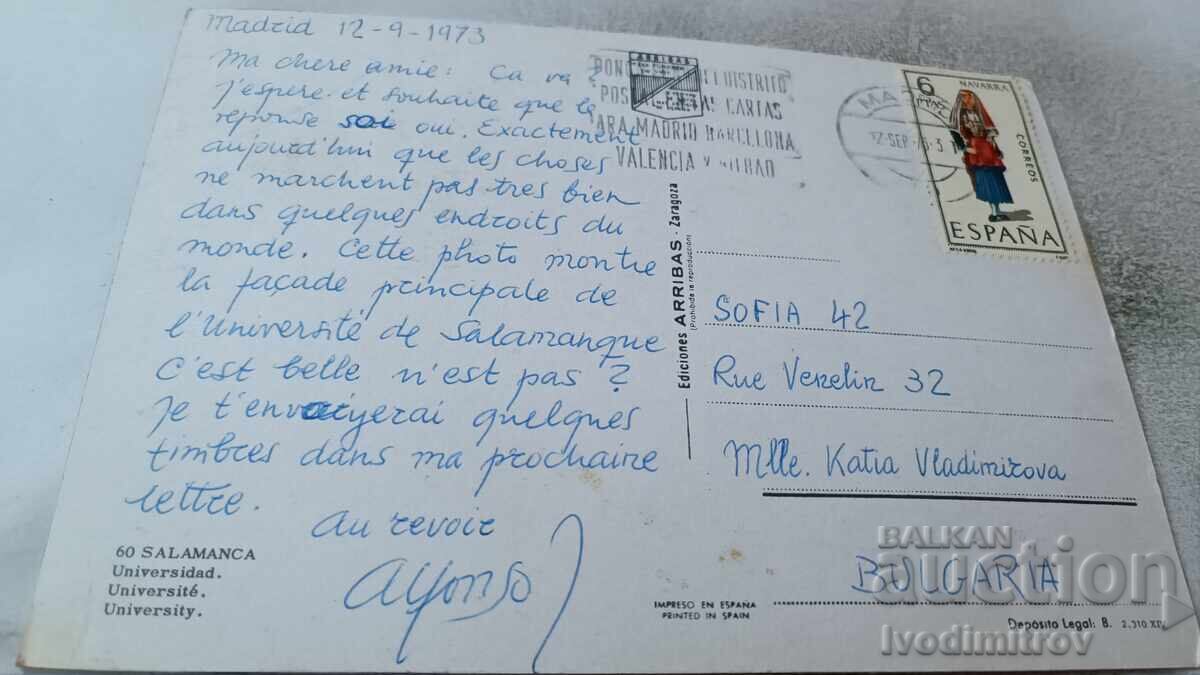 Madrid 12-9-1973
Ma chere amie: Ca va?
j'espere et souhaite que la
reponse soi oui. Exactement
aujourd'hui que les choses
ne marchent pas tres bien
dans quelques endroits du
monde. Cette photo montre
la façade principale de
l'Université de Salamanque
C'est belle n'est pas?
je t'envoiyerai quelques
timbres dans ma prochaine
lettre.
au revoir
Alfonso
60 SALAMANCA
Universidad.
Université.
University.
Ediciones ARRIBAS - Zaragoza
(Prohibida la reproducción)
ARRIBAS
DISTRITO
CARTAS
MADRID BARCELONA
VALENCIA Y BILBAO
12 SEP
6
PTAS
NAVARRA
CORREOS
ESPAÑA
SOFIA 42
Rue Verelin 32
Mlle. Katia Vladimirova
BULGARIA
IMPRESO EN ESPAÑA
PRINTED IN SPAIN
Depósito Legal: B. 2.310
BALKAN
auction
Ivodimitrov